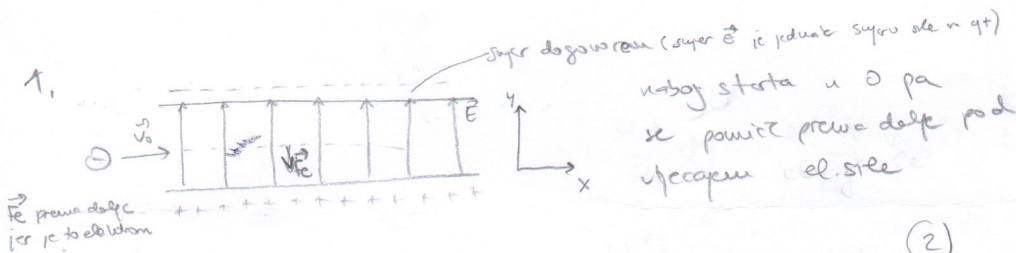 smjer dogovoren (smjer E⃗ je jednak smjeru sile na q+)
1.
naboj starta u O pa
se pomiče prema dolje pod
utjecajem el. sile
y
E⃗
v⃗₀
⊖
F⃗e
x
+ + + + + + + + + + + + +
F⃗e prema dolje
jer je to elektron
(2)